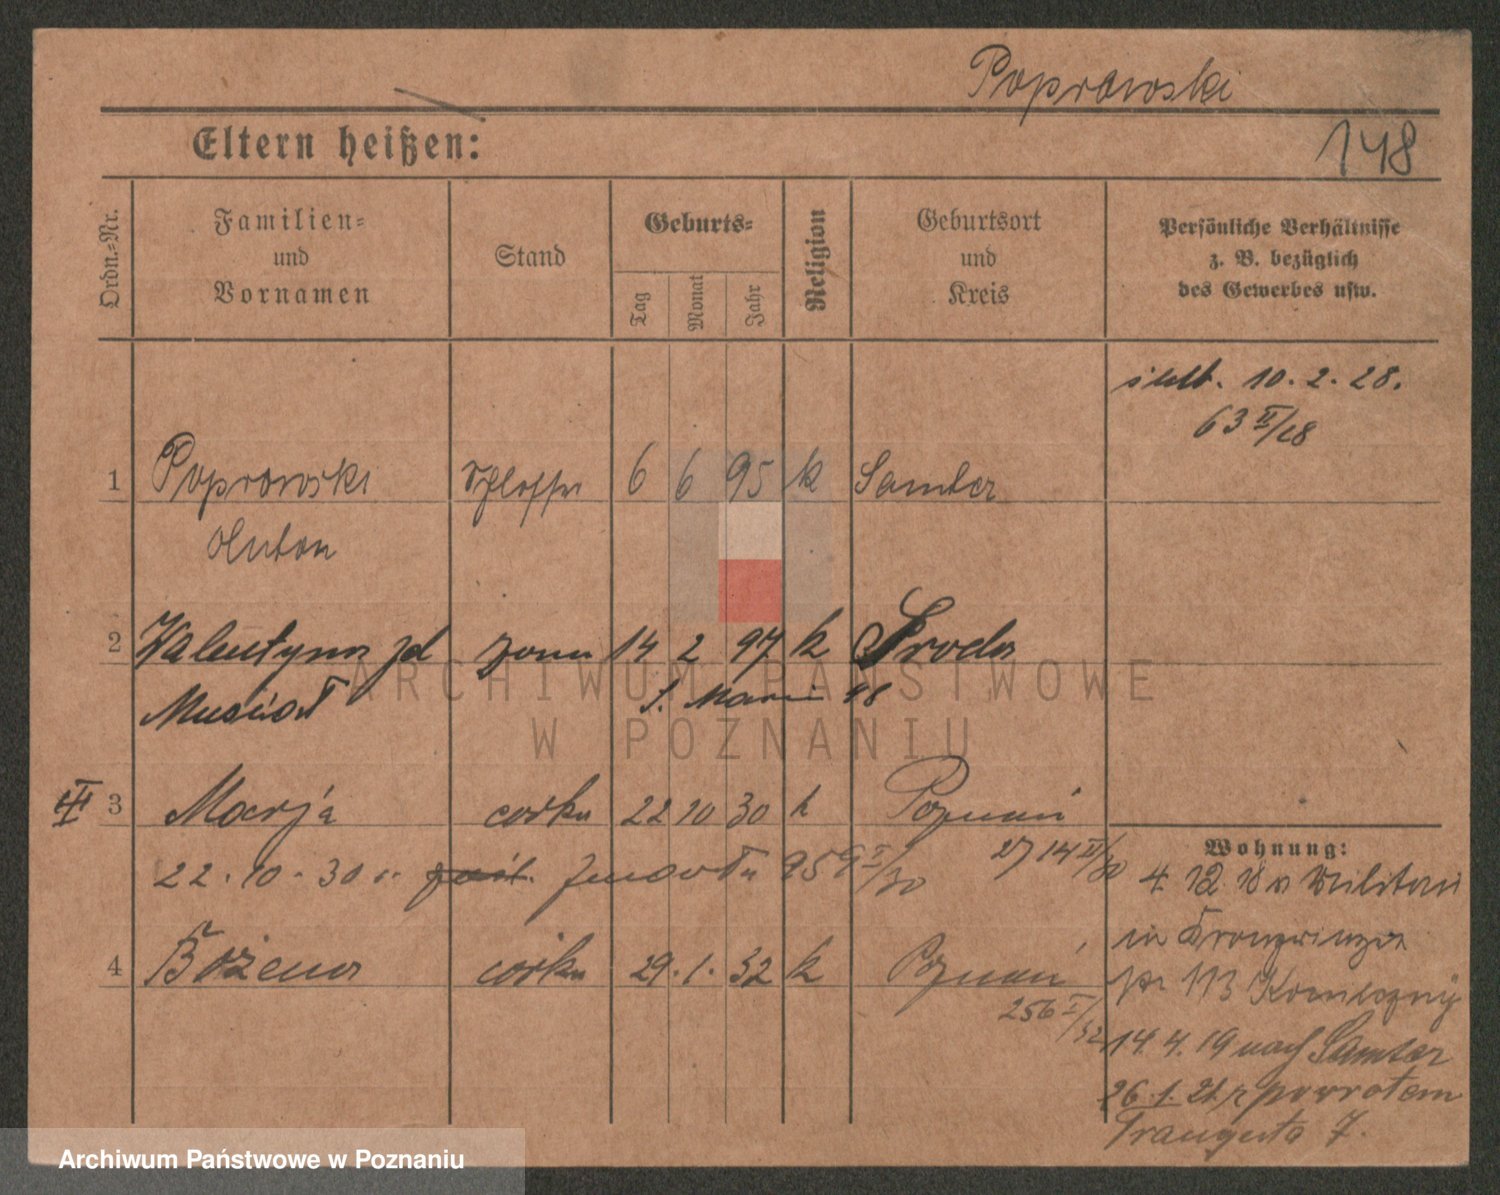 Poprawski
148
Eltern heißen:
Ordn.=Nr.
Familien=
und
Vornamen
Stand
Geburts=
Tag
Monat
Jahr
Religion
Geburtsort
und
Kreis
Persönliche Verhältnisse
z. B. bezüglich
des Gewerbes usw.
10. 2. 28.
63 II/28
1 Poprawski Schlosser 6 6 95 k Samter
Anton
2 Valentyna zd żona 14 2 97 k Środa
Musiał
48
3 Marja córka 22 10 30 k Poznań
22. 10. 30 zmarła 959 I/30 2714 II/30
4 Bożena córka 29. 1. 32 k Poznań
256 I/32
Wohnung:
4 12 18 v Militär
in
pr 113
14. 4. 19 nach Samter
26. 1. 21. z powrotem
Traugutta 7.
ARCHIWUM PAŃSTWOWE
W POZNANIU
Archiwum Państwowe w Poznaniu